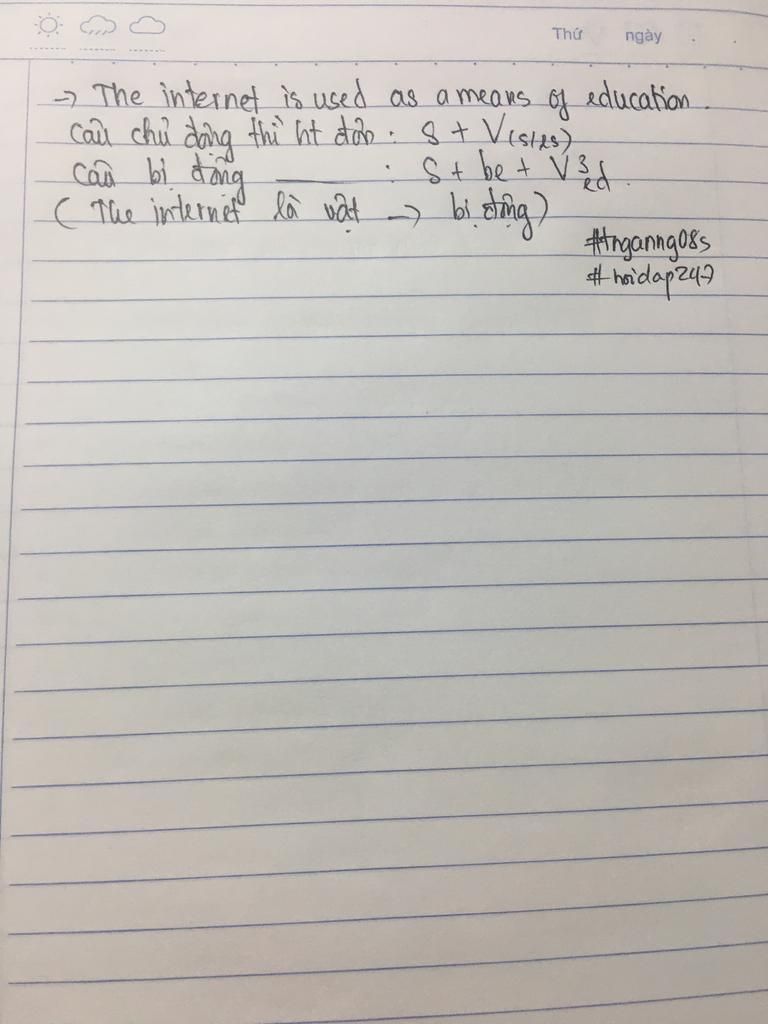 Thứ ngày
→ The internet is used as a means of education.
Câu chủ động thì ht đơn: S + V(s/es)
Câu bị động ——— : S + be + V3/ed.
(The internet là vật → bị động)
#tnganng08s
#hoidap247